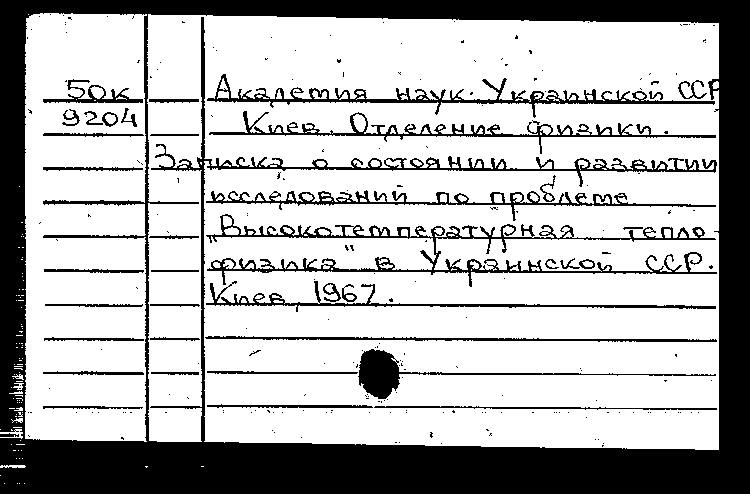 50к Академия наук Украинской ССР
9204 Киев. Отделение физики.
Записка о состоянии и развитии
исследований по проблеме
„Высокотемпературная тепло-
физика" в Украинской ССР.
Киев, 1967.